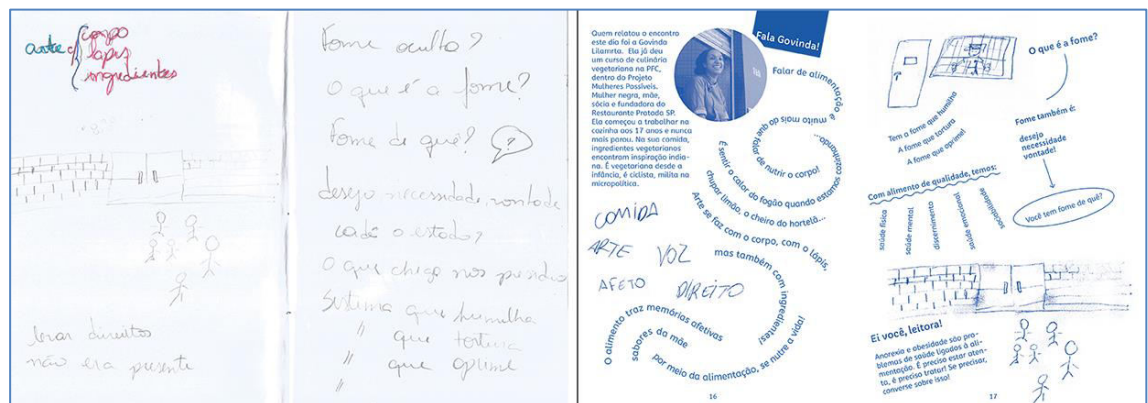 arte
corpo
lapis
ingredientes
levar direitos
não era presente
Fome oculta?
O que é a fome?
Fome de quê? ?
desejo necessidade, vontade
cadê o estado?
O que chega nos presídio
Sistema que humilha
" que tortura
" que oprime
"
Quem relatou o encontro
este dia foi a Govinda
Lilamrta. Ela já deu
um curso de culinária
vegetariana na PFC,
dentro do Projeto
Mulheres Possíveis.
Mulher negra, mãe,
sócia e fundadora do
Restaurante Pratada SP.
Ela começou a trabalhar na
cozinha aos 17 anos e nunca
mais parou. Na sua comida,
ingredientes vegetarianos
encontram inspiração india-
na. É vegetariana desde a
infância, é ciclista, milita na
micropolítica.
Fala Govinda!
Falar de alimentação é
muito mais do que falar
de nutrir o corpo!
É sentir o calor do fogão quando estamos cozinhando...
chupar limão, o cheiro do hortelã...
Arte se faz com o corpo, com o lápis,
mas também com ingredientes!
O alimento traz memórias afetivas
sabores da mãe
por meio da alimentação, se nutre a vida!
COMIDA
ARTE VOZ
AFETO DIREITO
16
O que é a fome?
Tem a fome que humilha
A fome que tortura
A fome que oprime!
Fome também é:
desejo
necessidade
vontade!
Você tem fome de quê?
Com alimento de qualidade, temos:
saúde física
saúde mental
discernimento
saúde emocional
sociabilidade
Ei você, leitora!
Anorexia e obesidade são pro-
blemas de saúde ligados à ali-
mentação. É preciso estar aten-
ta, é preciso tratar! Se precisar,
converse sobre isso!
17